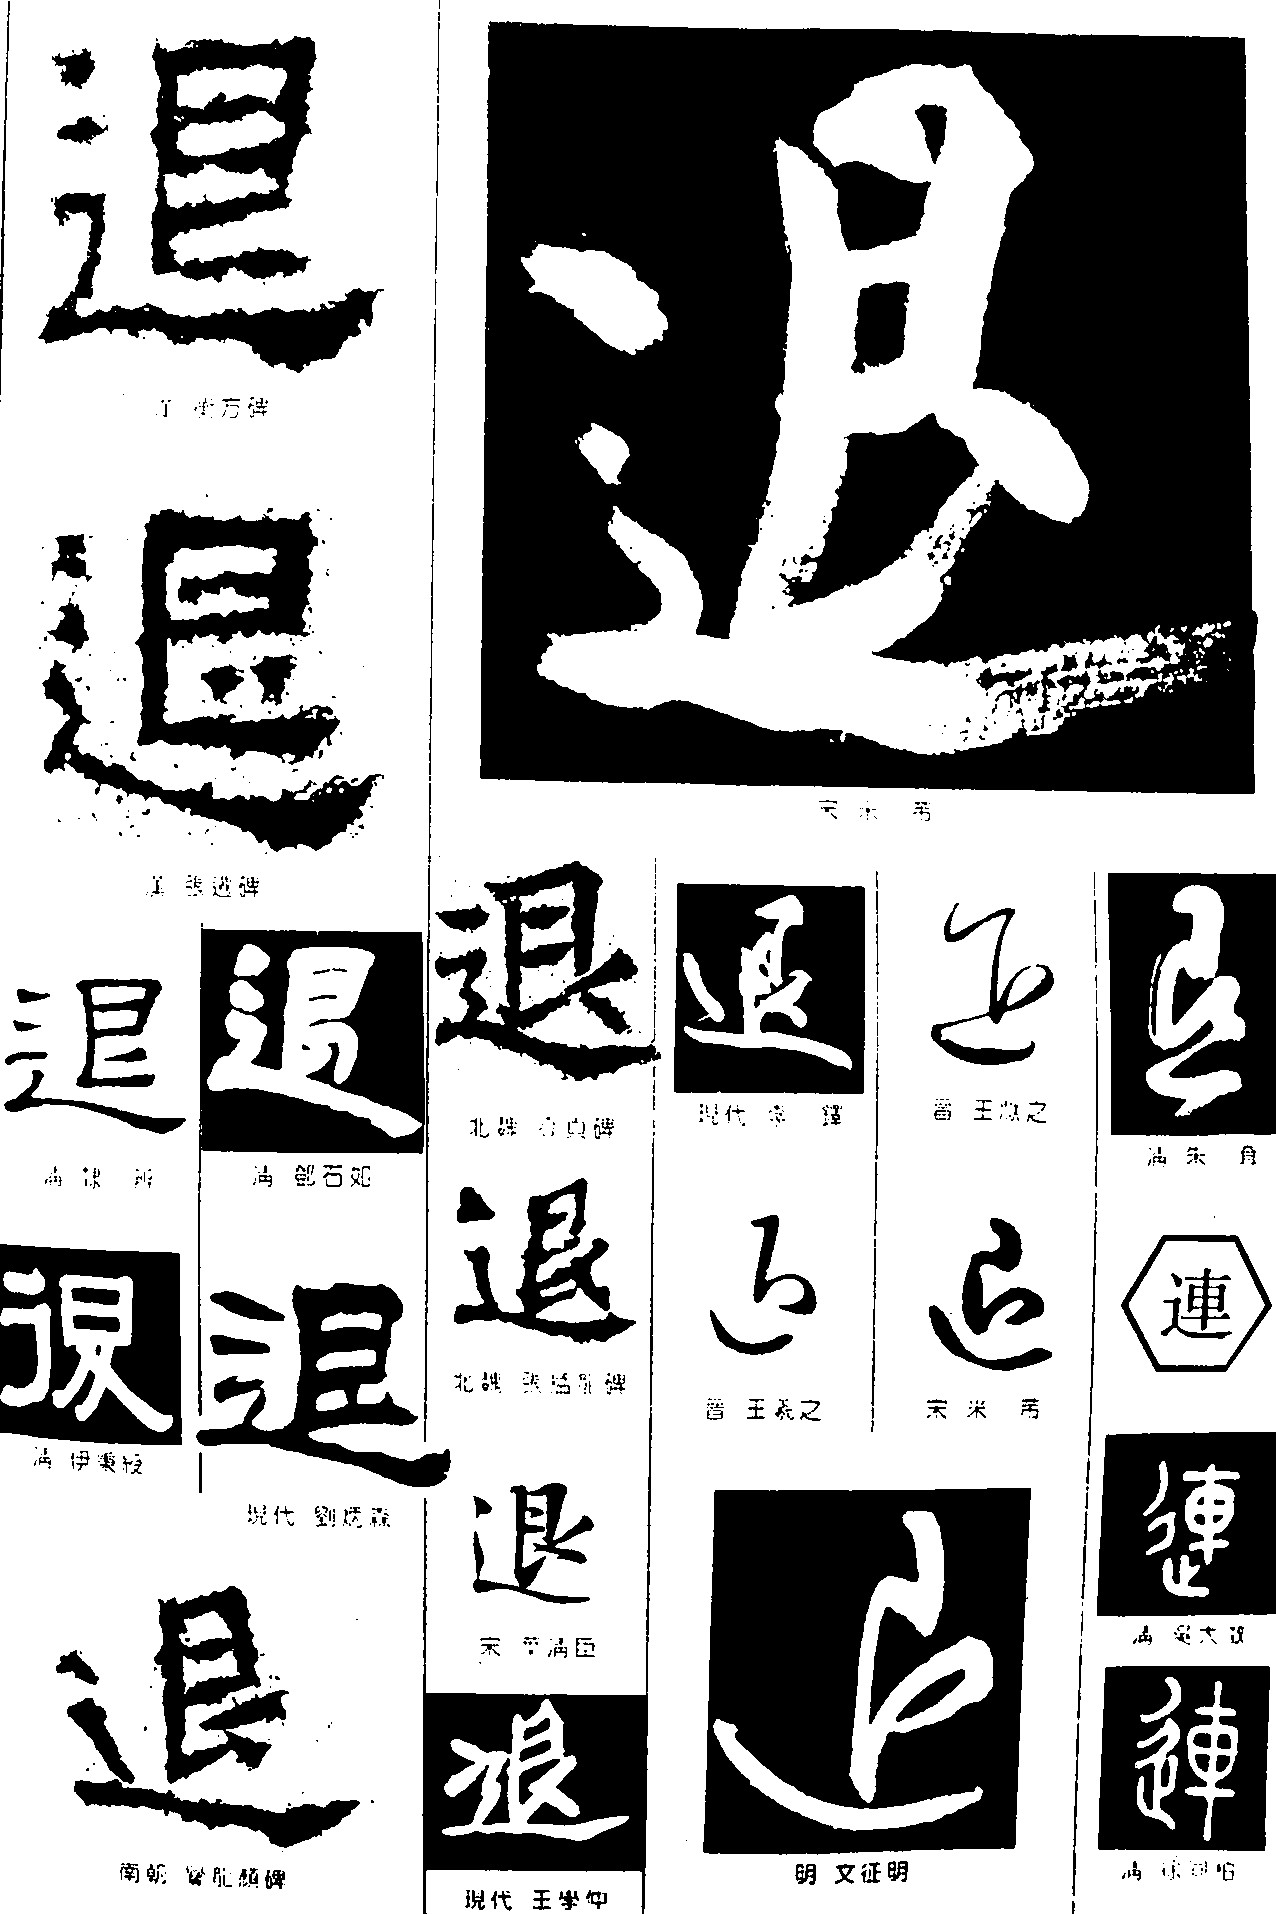 退
衡方碑
退
漢 張遷碑
退
清
退
清 鄧石如
退
清 伊秉綬
退
現代 劉炳森
退
南朝 爨龍顏碑
退
宋 米 芾
退
北魏
碑
退
北魏 張猛龍碑
退
宋
退
現代 王學仲
退
現代 李 鐸
退
晉 王羲之
退
明 文征明
退
晉 王獻之
退
宋 米 芾
退
清 朱 耷
連
連
清 吳大澂
連
清